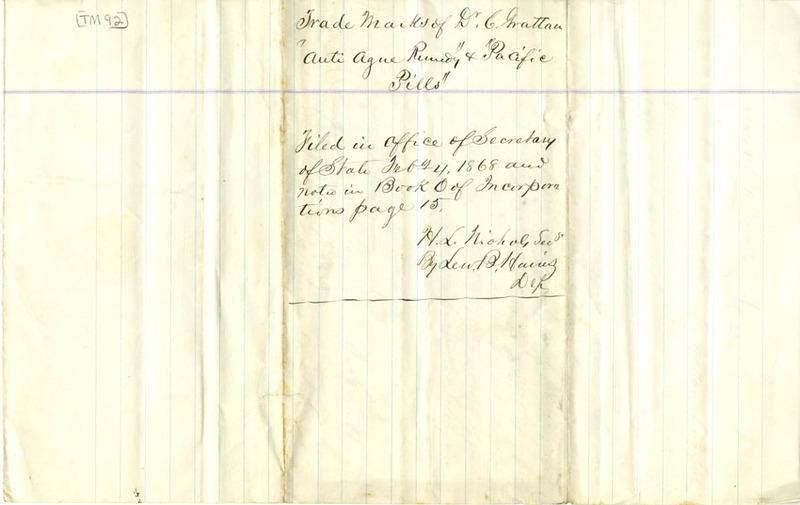 [TM 92]
Trade Marks of Dr. C. Grattan
"Anti Ague Remedy" & "Pacific
Pills"
Filed in office of Secretary
of State Feby 4, 1868 and
note in Book O of Incorpora
tions page 15.
H. L. Nichols Secy
By Lew. B. Harris
Dep